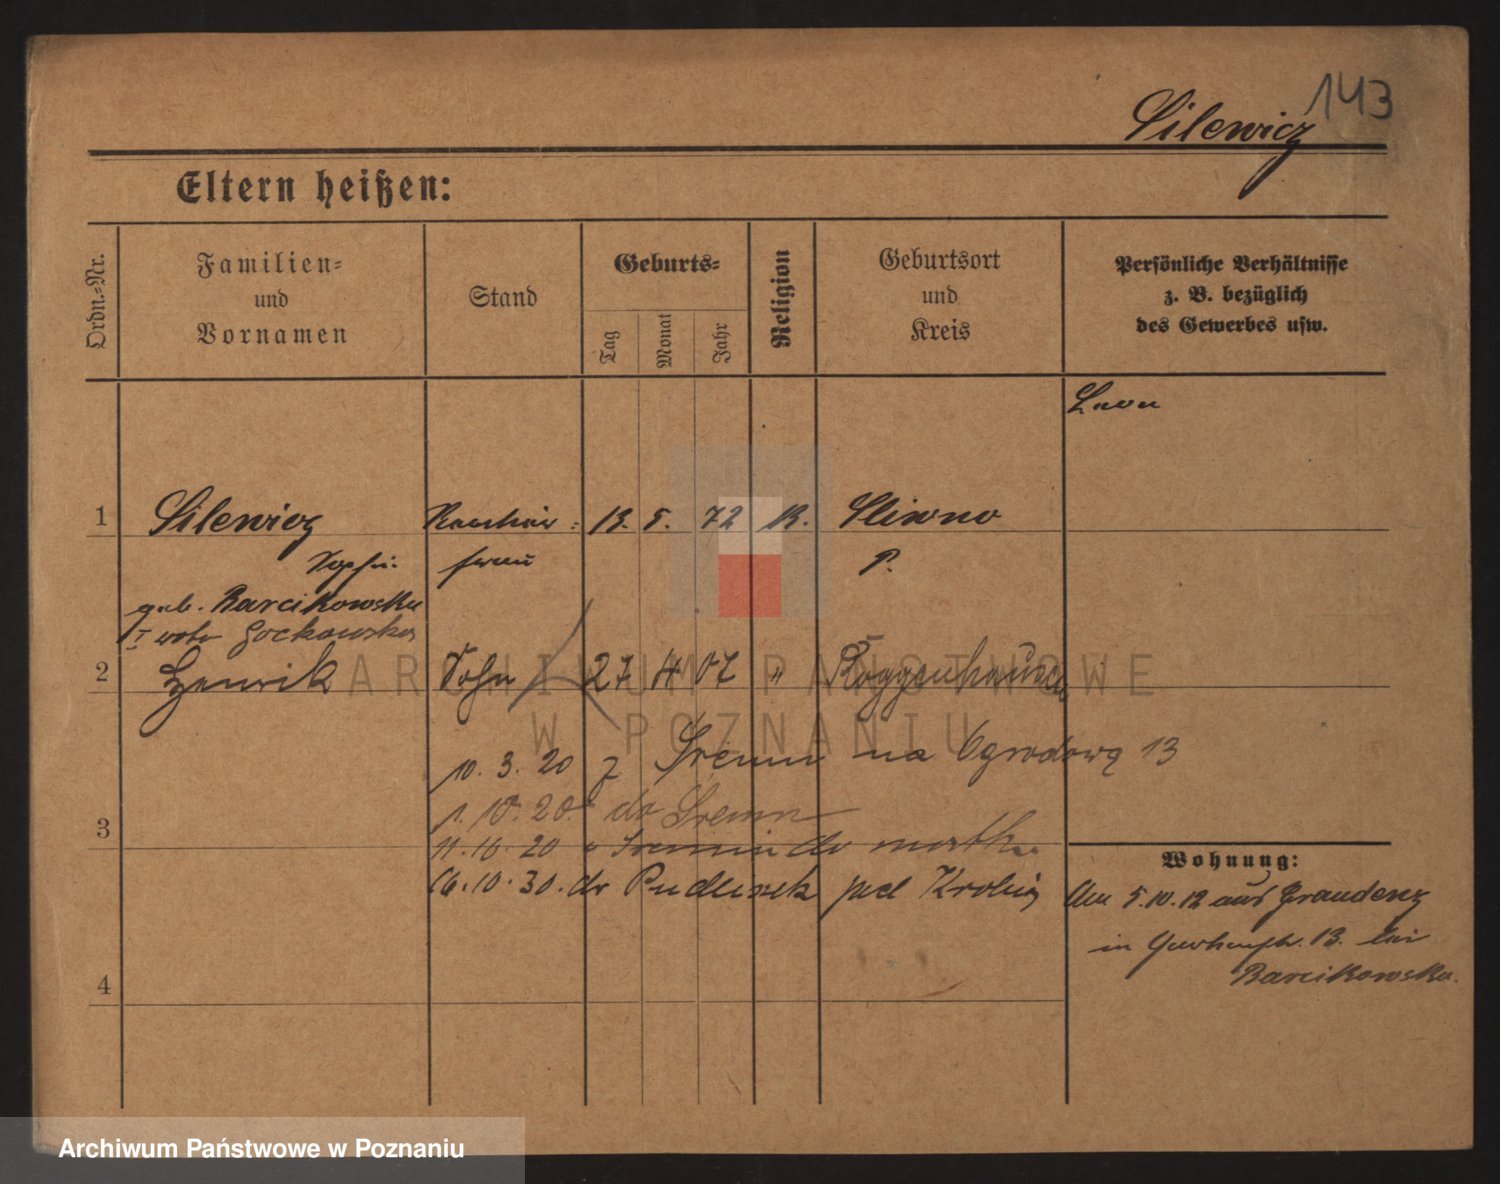 143
Silewicz
Eltern heißen:
Ordn.=Nr.
Familien=
und
Vornamen
Stand
Geburts=
Tag
Monat
Jahr
Religion
Geburtsort
und
Kreis
Persönliche Verhältnisse
z. B. bezüglich
des Gewerbes usw.
1 Silewicz 13. 5. 72 Sliwno
frau P.
geb. Barcikowska
I voto
2 Henrik Sohn 27 4 07 " Roggenhausen
10. 3. 20 z Śremu na Ogrodową 13
1. 10. 20. do Śremu
3
11. 10. 20 do
16. 10. 30. do Pudliszek pod Krobią
4
Wohnung:
Am 5.10.12 aus Graudenz
in 13. bei
Barcikowska.
ARCHIWUM PAŃSTWOWE
W POZNANIU
Archiwum Państwowe w Poznaniu